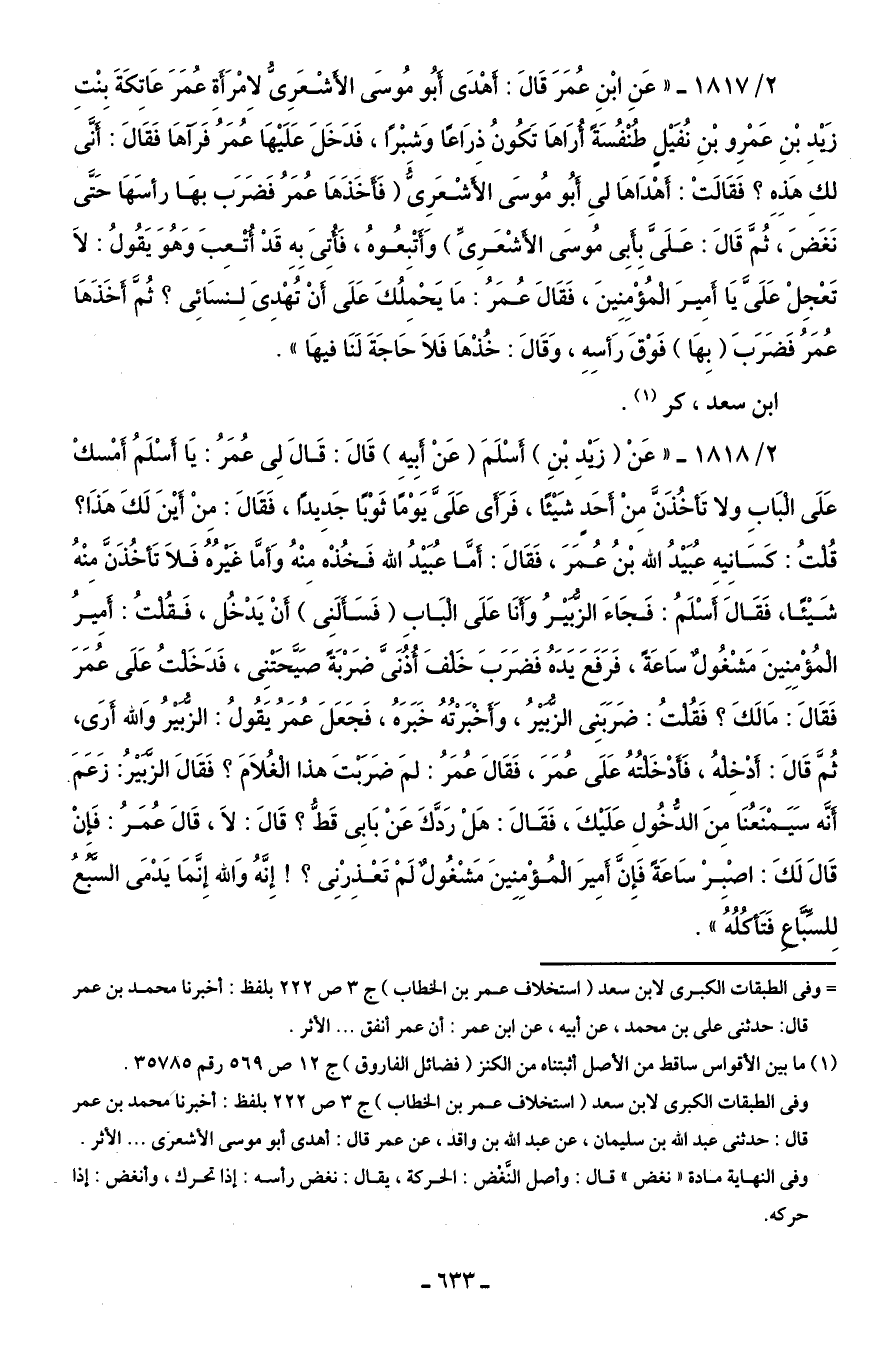 ٢/ ١٨١٧ ـ « عَنِ ابْنِ عُمَرَ قَالَ : أَهْدَى أَبُو مُوسَى الأَشْعَرِىُّ لامْرَأَةِ عُمَرَ عَاتِكَةَ بِنْتِ
زَيْدِ بْنِ عَمْرِو بْنِ نُفَيْلٍ طُنْفُسَةً أُرَاهَا تَكُونُ ذِرَاعًا وَشِبْرًا ، فَدَخَلَ عَلَيْهَا عُمَرُ فَرَآهَا فَقَالَ : أَنَّى
لك هَذِهِ ؟ فَقَالَتْ : أَهْدَاهَا لِى أَبُو مُوسَى الأَشْعَرِىُّ ( فَأَخَذَهَا عُمَرُ فَضَرَبَ بِهَا رأسَهَا حَتَّى
نَغَضَ ، ثُمَّ قَالَ : عَلَىَّ بِأَبِى مُوسَى الأَشْعَرِىِّ ) وَأَتْبِعُوهُ ، فَأُتِىَ بِهِ قَدْ أُتْعِبَ وَهُوَ يَقُولُ : لاَ
تَعْجِلْ عَلَىَّ يَا أَمِيرَ الْمُؤْمِنِينَ ، فَقَالَ عُمَرُ : مَا يَحْمِلُكَ عَلَى أَنْ تُهْدِىَ لِنسَائِى ؟ ثُمَّ أَخَذَهَا
عُمَرُ فَضَرَبَ ( بِهَا ) فَوْقَ رَأْسِهِ ، وَقَالَ : خُذْهَا فَلاَ حَاجَةَ لَنَا فِيهَا » .
ابن سعد ، كر (١) .
٢/ ١٨١٨ ـ « عَنْ ( زَيْدِ بْنِ ) أَسْلَمَ ( عَنْ أَبِيهِ ) قَالَ : قَالَ لِى عُمَرُ : يَا أَسْلَمُ أَمْسِكْ
عَلَى الْبَابِ ولا تَأخُذَنَّ مِنْ أَحَدٍ شَيْئًا ، فَرَأَى عَلَىَّ يَوْمًا ثَوْبًا جَدِيدًا ، فَقَالَ : مِنْ أَيْنَ لَكَ هَذَا؟
قُلْتُ : كَسَانِيهِ عُبَيْدُ الله بْنُ عُمَرَ ، فَقَالَ : أَمَّا عُبَيْدُ الله فَخُذْه مِنْهُ وَأَمَّا غَيْرُهُ فَلاَ تَأخُذَنَّ مِنْهُ
شَيْئًا، فَقَالَ أَسْلَمُ : فَجَاءَ الزُّبَيْرُ وَأَنَا عَلَى الْبَابِ ( فَسَأَلَنِى ) أَنْ يَدْخُلَ ، فَقُلْتُ : أَمِيرُ
الْمُؤْمِنِينَ مَشْغُولٌ سَاعَةً ، فَرَفَعَ يَدَهُ فَضَرَبَ خَلْفَ أُذُنَىَّ ضَرْبَةً صَيَّحَتْنِى ، فَدَخَلْتُ عَلَى عُمَرَ
فَقَالَ : مَالَكَ ؟ فَقُلْتُ : ضَرَبَنِى الزُّبَيْرُ ، وَأَخْبَرْتُهُ خَبَرَهُ ، فَجَعَلَ عُمَرُ يَقُولُ : الزُّبَيْرُ وَالله أَرَى،
ثُمَّ قَالَ : أَدْخِلْهُ ، فَأَدْخَلْتُهُ عَلَى عُمَرَ ، فَقَالَ عُمَرُ : لِمَ ضَرَبْتَ هذا الْغُلاَمَ ؟ فَقَالَ الزُّبَيْرُ: زَعَمَ
أَنَّه سَيَمْنَعُنَا مِنَ الدُّخُولِ عَلَيْكَ ، فَقَالَ : هَلْ رَدَّكَ عَنْ بَابِى قَطُّ ؟ قَالَ : لاَ ، قَالَ عُمَرُ : فَإِنْ
قَالَ لَكَ : اصْبِرْ سَاعَةً فَإِنَّ أَمِيرَ الْمُؤْمِنِينَ مَشْغُولٌ لَمْ تَعْذِرْنِى ؟ ! إِنَّهُ وَالله إِنَّمَا يَدْمَى السَّبُعُ
لِلسِّبَّاعِ فَتَأكُلُهُ » .
= وفى الطبقات الكبرى لابن سعد ( استخلاف عمر بن الخطاب ) ج ٣ ص ٢٢٢ بلفظ : أخبرنا محمد بن عمر
قال: حدثنى على بن محمد ، عن أبيه ، عن ابن عمر : أن عمر أنفق ... الأثر .
(١) ما بين الأقواس ساقط من الأصل أثبتناه من الكنز ( فضائل الفاروق ) ج ١٢ ص ٥٦٩ رقم ٣٥٧٨٥ .
وفى الطبقات الكبرى لابن سعد ( استخلاف عمر بن الخطاب ) ج ٣ ص ٢٢٢ بلفظ : أخبرنا محمد بن عمر
قال : حدثنى عبد الله بن سليمان ، عن عبد الله بن واقد ، عن عمر قال : أهدى أبو موسى الأشعرى ... الأثر .
وفى النهاية مادة « نغض » قال : وأصل النَّغْض : الحركة ، يقال : نغض رأسه : إذا تحرك ، وأنغض : إذا
حركه.
ـ ٦٣٣ ـ